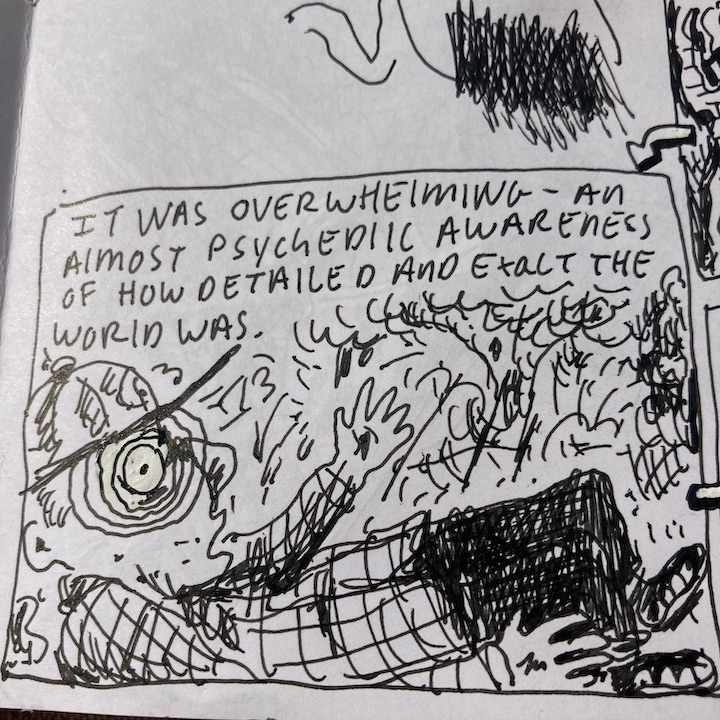 IT WAS OVERWHElMING - AN
AlMOST PSYCHEDIlC AWARENESS
OF HOW DETAILED AND EXaCT THE
WORlD WAS.